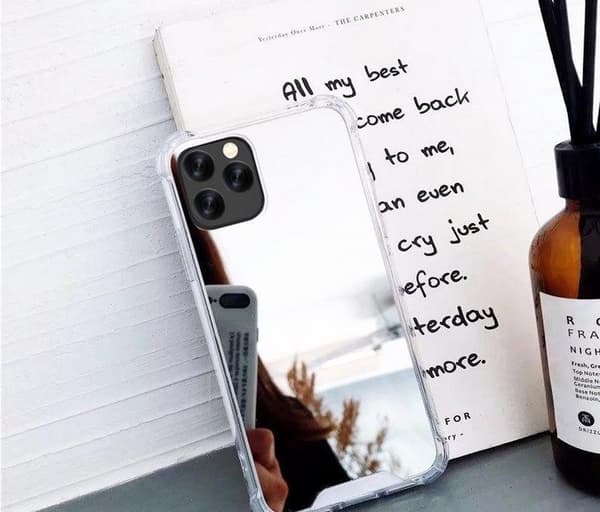 Yesterday Once More - THE CARPENTERS
All my best
come back
to me,
an even
cry just
efore.
terday
more.
FOR
ery -
R
FRA
NIGH
Fresh, Gre
Top Note
Middle N
Geranium
Base Not
Benzoin,
DRIZZL